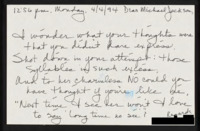 12:56 p.m. Monday, 4/4/94 Dear Michael Jackson,
I wonder what your thoughts were
that you didn't have
Shot down in your attempt: those
Syllables in such excess.
And to her charmless NO could you
have thought if you're like me,
"Next time I see her won't I love
to say long time no see!"